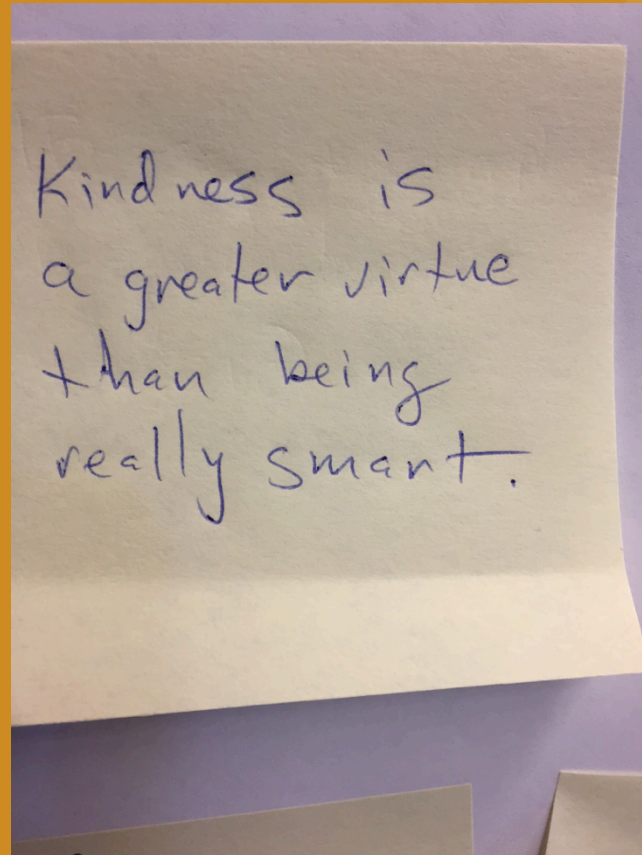 Kindness is
a greater virtue
than being
really smart.